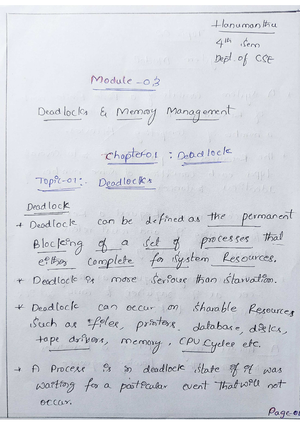 Hanumanthu
4th Sem
Dept. of CSE
Module-03
Deadlocks & Memory Management
Chapter-01 : Deadlock
Topic-01:- Deadlocks
Deadlock
* Deadlock can be defined as the permanent
Blocking of a set of processes that
either complete for System Resources.
* Deadlock is more serious than starvation.
* Deadlock can occur on sharable Resources
such as files, printers, database, disks,
tape drivers, memory, CPU Cycles etc.
* A Process is in deadlock state if it was
waiting for a particular event that will not
occur.